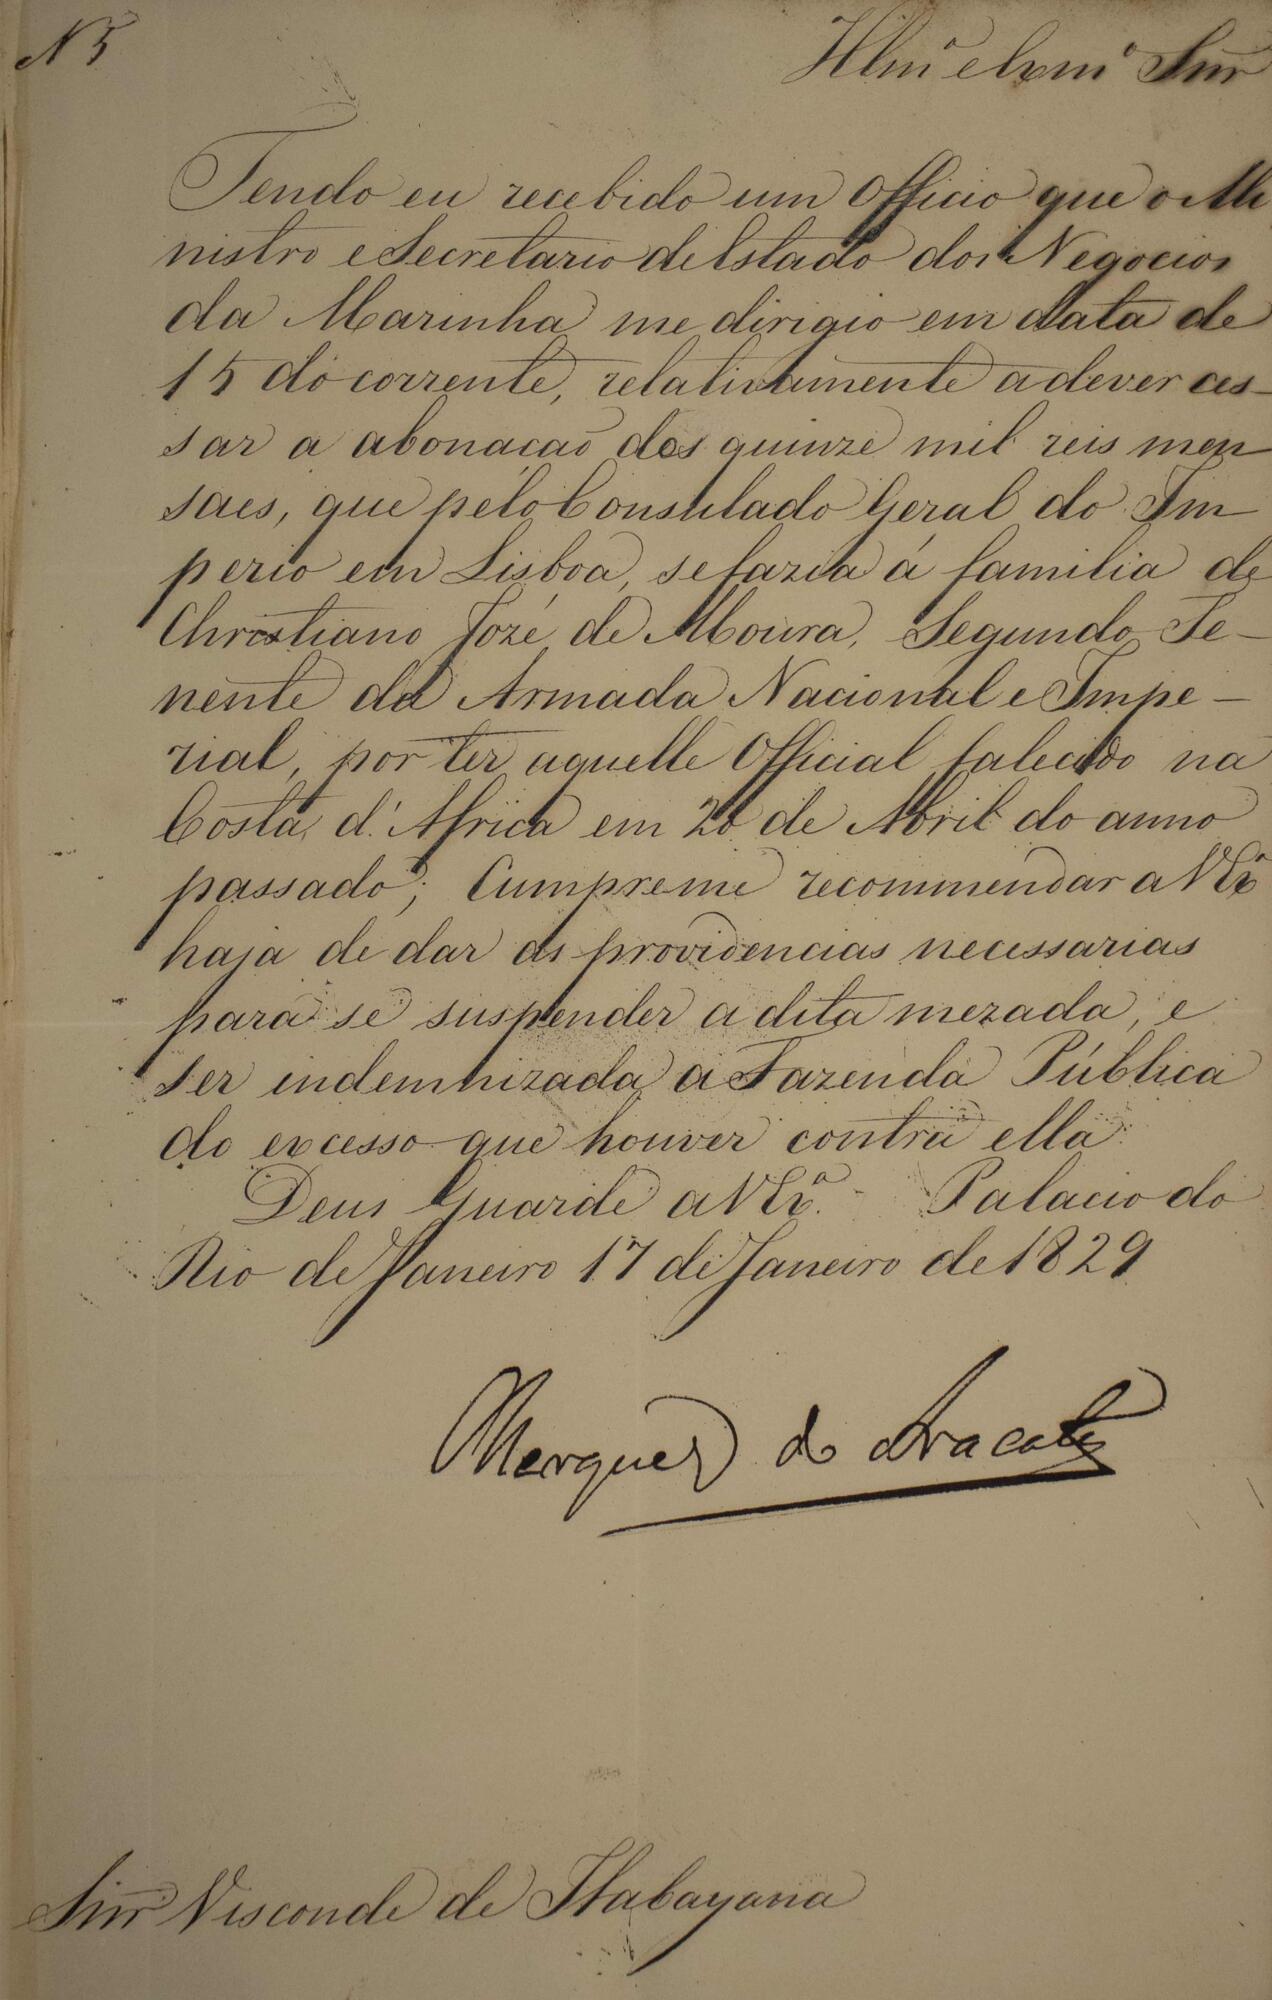 N 5
Illmº e Exmº Snr
Tendo eu recebido um Officio que o Mi
nistro e Secretario de Estado dos Negocios
da Marinha me dirigio em data de
15 do corrente, relativamente a dever ces-
sar a abonacaõ dos quinze mil reis men
saes, que pelo Consulado Geral do Im
perio em Lisboa, se fazia á familia de
Christiano Jozé de Moura, Segundo Te-
nente da Armada Nacional e Impe-
rial, por ter aquelle Official falecido na
Costa, d'Africa em 20 de Abril do anno
passado; Cumpreme recommendar a V Exª
haja de dar as providencias necessarias
para se suspender a dita mezada, e
ser indemnizada a Fazenda Pública
do excesso que houver contra ella.
Deus Guarde a V Exª. Palacio do
Rio de Janeiro 17 de Janeiro de 1829
Marquez de Aracaty
Snr Visconde de Itabayana